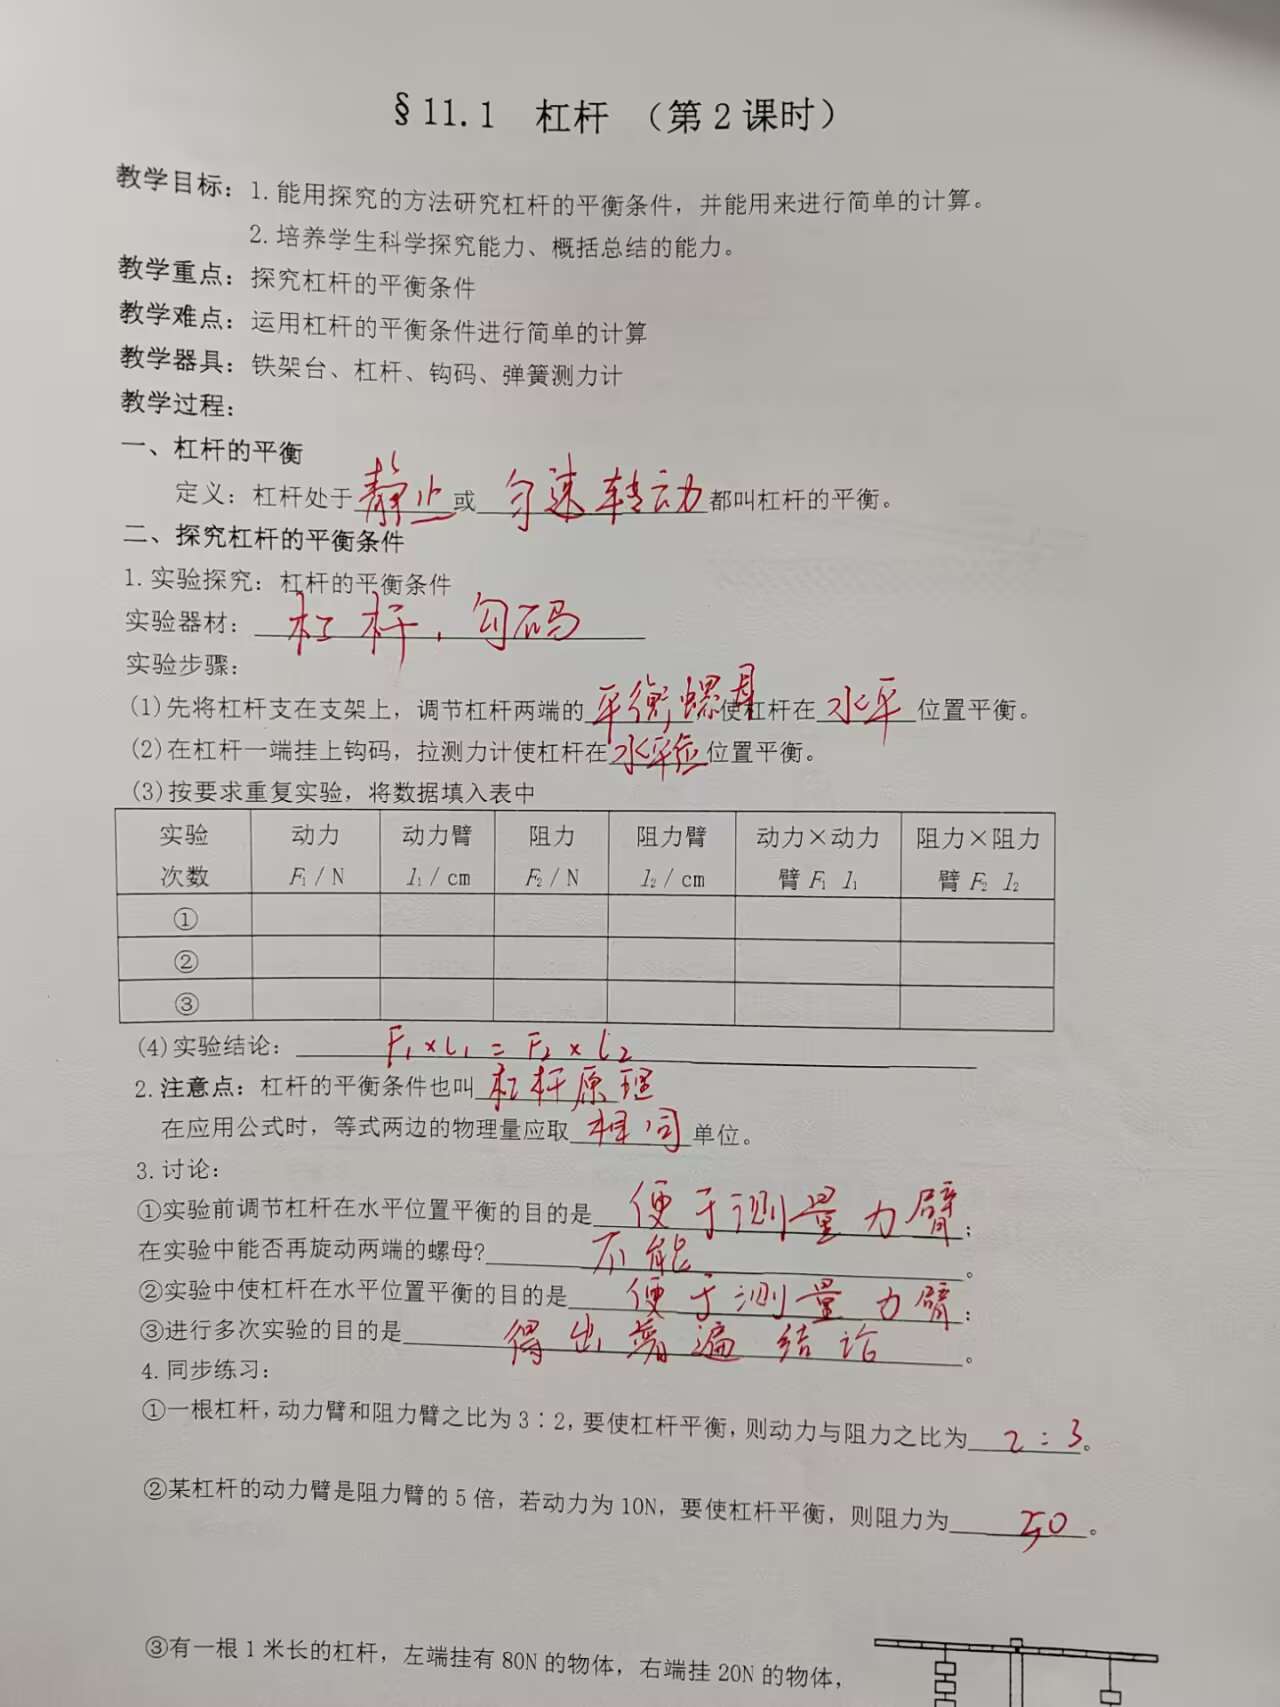 §11.1 杠杆 (第2课时)
教学目标：1.能用探究的方法研究杠杆的平衡条件，并能用来进行简单的计算。
2.培养学生科学探究能力、概括总结的能力。
教学重点：探究杠杆的平衡条件
教学难点：运用杠杆的平衡条件进行简单的计算
教学器具：铁架台、杠杆、钩码、弹簧测力计
教学过程：
一、杠杆的平衡
定义：杠杆处于静止或匀速转动都叫杠杆的平衡。
二、探究杠杆的平衡条件
1.实验探究：杠杆的平衡条件
实验器材：杠杆，勾码
实验步骤：
(1)先将杠杆支在支架上，调节杠杆两端的平衡螺母使杠杆在水平位置平衡。
(2)在杠杆一端挂上钩码，拉测力计使杠杆在水平位位置平衡。
(3)按要求重复实验，将数据填入表中
实验次数 动力 F₁/N 动力臂 l₁/cm 阻力 F₂/N 阻力臂 l₂/cm 动力×动力臂 F₁ l₁ 阻力×阻力臂 F₂ l₂
①
②
③
(4)实验结论：F₁×L₁=F₂×L₂
2.注意点：杠杆的平衡条件也叫杠杆原理
在应用公式时，等式两边的物理量应取相同单位。
3.讨论：
①实验前调节杠杆在水平位置平衡的目的是便于测量力臂；
在实验中能否再旋动两端的螺母?不能。
②实验中使杠杆在水平位置平衡的目的是便于测量力臂；
③进行多次实验的目的是得出普遍结论。
4.同步练习：
①一根杠杆，动力臂和阻力臂之比为3∶2，要使杠杆平衡，则动力与阻力之比为2:3。
②某杠杆的动力臂是阻力臂的5倍，若动力为10N，要使杠杆平衡，则阻力为50。
③有一根1米长的杠杆，左端挂有80N的物体，右端挂20N的物体，